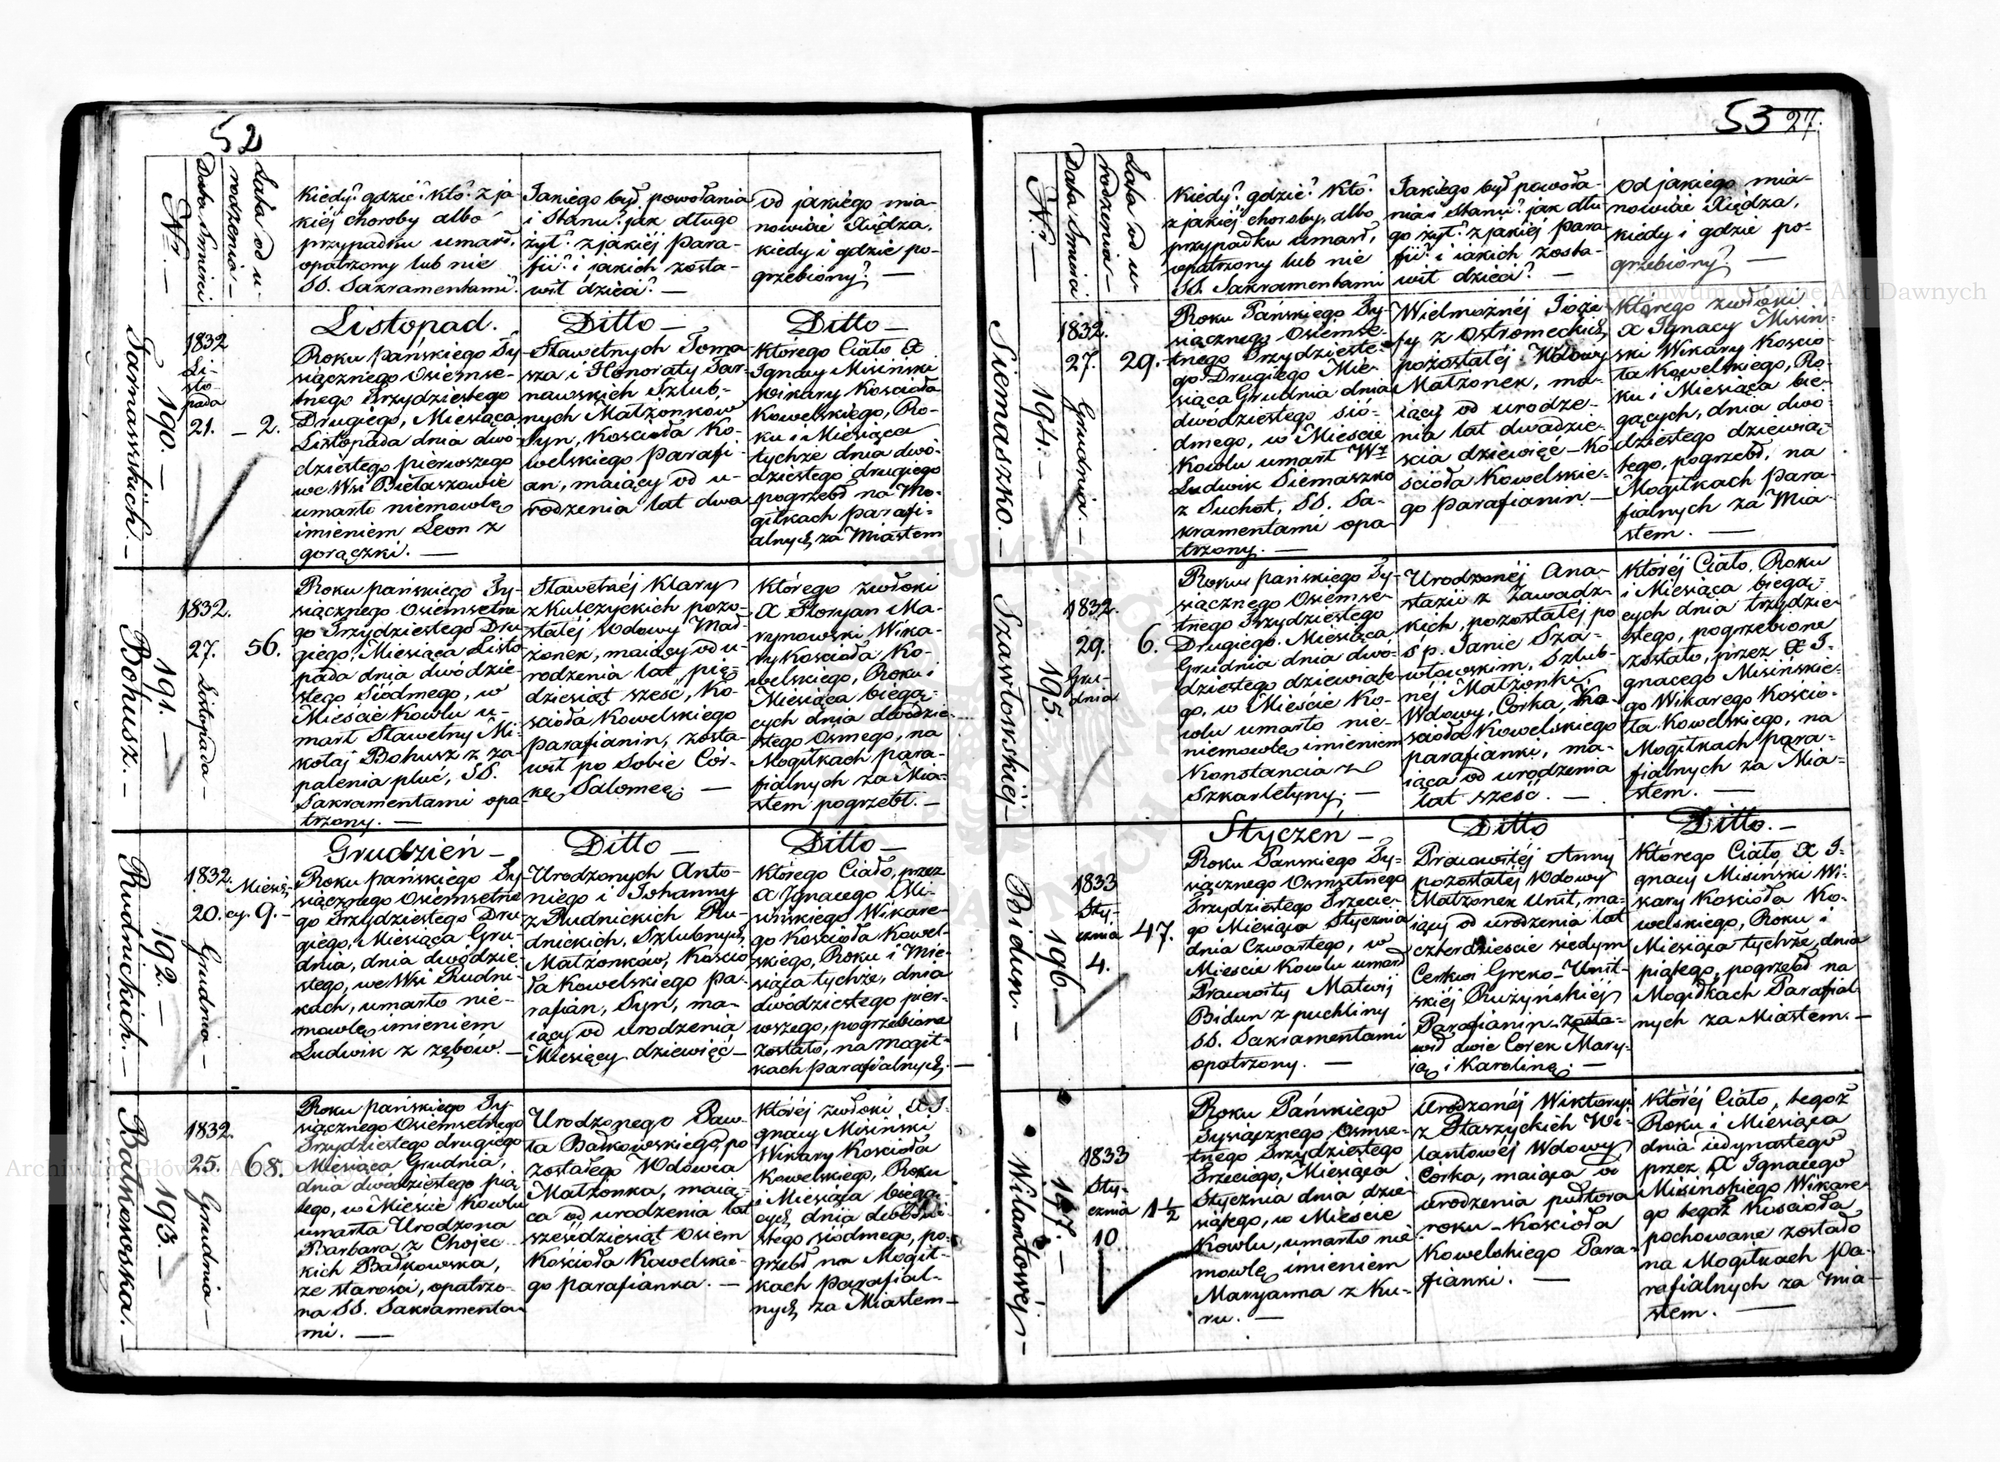 52
Nr. —
Data Śmierci
Lata od u-
rodzenia. —
Kiedy? gdzie? kto? z ja
kiéj choroby albo
przypadku umarł,
opatrzony lub nie
SS. Sakramentami?
Jakiego był powołania
i stanu? jak długo
żył? z jakiéj Para-
fii? i jakich zosta-
wił dzieci? —
Od jakiego mia-
nowicie Xiędza,
kiedy i gdzie po-
grzebiony? —
Tarnawskiich. —
190. —
1832
Li-
sto-
pada
21.
— 2.
Listopad.
Roku pańskiego Ty-
siącznego Osiemse-
tnego Trzydziestego
Drugiego, Miesiąca
Listopada dnia dwó-
dziestego pierwszego
we Wsi Bielaszowie
umarło niemowlę
imieniem Leon z
gorączki. —
Ditto —
Sławetnych Toma
sza i Honoraty Tar-
nawskich Szlub-
nych Małżonkow
Syn, Kościoła Ko-
welskiego parafi-
an, maiący od u-
rodzenia lat dwa
Ditto —
Którego Ciało X
Ignacy Misinski
Wikary Kościoła
Kowelskiego, Ro-
ku i Miesiąca
tychże dnia dwó-
dziestego drugiego
pogrzebł na Mo-
giłkach parafi-
alnych za Miastem
Bohusz. —
191. —
1832.
27. Listopada —
56.
Roku pańskiego Ty-
siącznego Osiemsetne
go Trzydziestego Dru
giego, Miesiąca Listo
pada dnia dwódzie
stego Siódmego, w
Mieście Kowlu u-
marł Sławetny Mi-
kołaj Bohusz z za
palenia płuć, SS.
Sakramentami opa
trzony. —
Sławetnéj Klary
z Kulczyckich pozo-
stałéj Wdowy Mał-
żonek, maiący od u-
rodzenia lat pięć
dziesiąt sześć, Ko-
ścioła Kowelskiego
parafianin, zosta-
wił po Sobie Cór-
kę Salomeę. —
Którego zwłoki
X Floryan Ma-
rynowski Wika-
ry Kościoła Ko-
welskiego, Roku i
Miesiąca biegą-
cych dnia dwódzie-
stego Osmego, na
Mogiłkach para-
fialnych za Mia-
stem pogrzebł. —
Rudnickich. —
192. —
1832.
20. Grudnia —
Miesię-
cy. 9. —
Grudzień —
Roku pańskiego Ty-
siącznego Osiemsetne
go Trzydziestego Dru
giego, Miesiąca Gru-
dnia, dnia dwódzie-
stego, we Wsi Rudni-
kach, umarło nie-
mowlę imieniem
Ludwik z zębów. —
Ditto —
Urodzonych Anto-
niego i Johanny
z Rudnickich Ru-
dnickich, Szlubnych
Małżonkow, Kościo
ła Kowelskiego pa-
rafian, Syn, ma-
iący od urodzenia
Miesięcy dziewięć —
Ditto —
Którego Ciało, przez
X Ignacego Mi-
sińskiego Wikare-
go Kościoła Kowel-
skiego, Roku i Mie-
siąca tychże, dnia
dwódziestego pier-
wszego, pogrzebione
zostało, na mogił-
kach parafialnych. —
Bałkowska. —
193. —
1832.
25. Grudnia —
68.
Roku pańskiego Ty-
siącznego Osiemsetnego
Trzydziestego drugiego
Miesiąca Grudnia,
dnia dwódziestego pią
tego, w Mieście Kowlu
umarła Urodzona
Barbara z Choiec-
kich Bałkowska,
ze starości, opatrzo-
na SS. Sakramenta
mi. —
Urodzonego Paw-
ła Bałkowskiego, po
zostałego Wdowca
Małżonka, maią-
ca od urodzenia lat
sześćdziesiąt Osiem
Kościoła Kowelskie-
go parafianka. —
Któréj zwłoki, X I-
gnacy Misiński
Wikary Kościoła
Kowelskiego, Roku
i Miesiąca biegą
cych dnia dwódzie-
stego siodmego, po-
grzebł na Mogił-
kach parafial-
nych za Miastem —
53 27.
Nr. —
Data Śmierci
Lata od u-
rodzenia —
Kiedy? gdzie? Kto?
z jakiéj choroby, albo
przypadku umarł,
opatrzony lub nie
SS. Sakramentami
Jakiego był powoła-
nia i stanu? jak dłu
go żył? z jakiéj para
fii? i jakich zosta-
wił dzieci? —
Od jakiego mia-
nowicie Xiędza,
kiedy i gdzie po-
grzebiony? —
Siemaszko. —
194. —
1832.
27. Grudnia. —
29.
Roku Pańskiego Ty-
siącznego Osiemse-
tnego Trzydzieste-
go Drugiego Mie-
siąca Grudnia dnia
dwódziestego sió-
dmego, w Mieście
Kowlu umarł Wy
Ludwik Siemaszko
z Suchot, SS. Sa-
kramentami opa
trzony. —
Wielmożnéj Józe
fy z Ostromeckich
pozostałéj Wdowy
Małżonek, ma-
iący od urodze-
nia lat dwadzie-
ścia dziewięć — Ko
ścioła Kowelskie-
go parafianin —
Którego zwłoki
X Ignacy Misin-
ski Wikary Kościo-
ła Kowelskiego, Ro-
ku i Miesiąca bie-
gących, dnia dwó-
dziestego dziewią-
tego, pogrzebł, na
Mogiłkach para-
fialnych za Mia-
stem. —
Szawłowskiéj —
195.
1832.
29.
Gru-
dnia
6.
Roku pańskiego Ty-
siącznego Osiemse-
tnego Trzydziestego
Drugiego. Miesiąca
Grudnia dnia dwó-
dziestego dziewiąte
go, w Mieście Ko-
wlu umarło nie-
niemowlę imieniem
Konstancia z
Szkarletyny. —
Urodzonéj Ana-
stazii z Zawadz-
kich, pozostałéj po
śp. Janie Sza-
włowskim, Szlub-
néj Małżonki,
Wdowy, Corka, Ko-
ścioła Kowelskiego
parafianki, ma-
iąca od urodzenia
lat sześć. —
Któréj Ciało, Roku
i Miesiąca biegą-
cych dnia trzydzie
stego, pogrzebione
zostało, przez X I-
gnacego Misinskie-
go Wikarego Kościo-
ła Kowelskiego, na
Mogiłkach para-
fialnych za Mia-
stem. —
Bidun. —
196 —
1833
Sty-
cznia
4.
47.
Styczeń —
Roku Pańskiego Ty-
siącznego Osmsetnego
Trzydziestego Trzecie-
go Miesiąca Stycznia
dnia Czwartego, w
Mieście Kowlu umarł
Pracowity Matwij
Bidun z puchliny
SS. Sakramentami
opatrzony. —
Ditto
Pracowitéj Anny
pozostałéj Wdowy
Małżonek Unit, ma-
iący od urodzenia lat
czterdzieście siedym
Cerkwi Greko-Unit-
skiéj Rużyńskiéj
Parafianin zosta-
wił dwie Corek Mary-
ię i Karolinę. —
Ditto. —
Którego Ciało X I-
gnacy Misiński Wi-
kary Kościoła Ko-
welskiego, Roku i
Miesiąca tychże, dnia
piątego, pogrzebł na
Mogiłkach Parafial-
nych za Miastem. —
Wilantowéj —
197. —
1833
Sty-
cznia
10.
1 ½
Roku Pańskiego
Tysiącznego, Osmse-
tnego Trzydziestego
Trzeciego, Miesiąca
Stycznia dnia dzie-
siątego, w Mieście
Kowlu, umarło nie
mowlę imieniem
Maryanna z Ku-
ru. —
Urodzonéj Wiktoryi
z Staszyckich Wi-
lantowéj Wdowy
Córka, maiąca od
urodzenia pułtora
roku — Kościoła
Kowelskiego Para-
fianki. —
Któréj Ciało, tegoż
Roku i Miesiąca
dnia iedynastego
przez X Ignacego
Misinskiego Wikare
go tegoż Kościoła
pochowane zostało
na Mogiłkach Pa-
rafialnych za Mia-
stem. —
Archiwum Główne Akt Dawnych